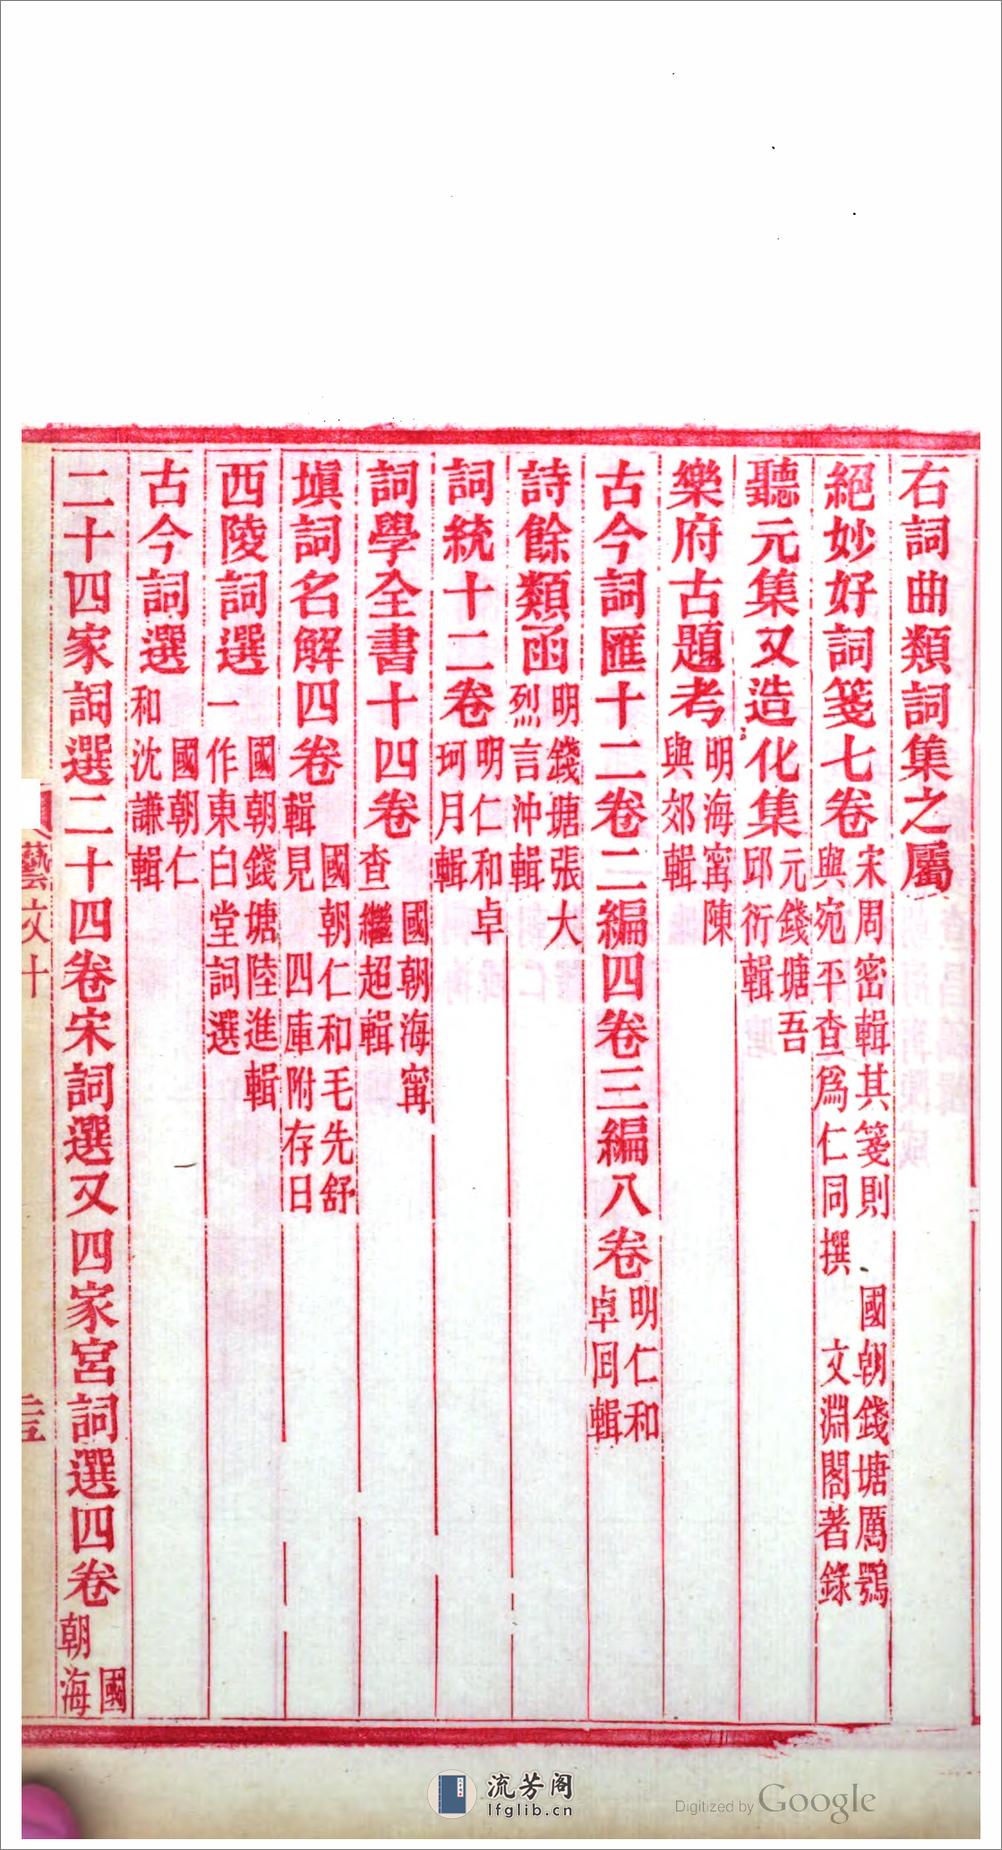 右詞曲類詞集之屬
絕妙好詞箋七卷宋周密輯其箋則　國朝錢塘厲鶚與宛平查爲仁同撰　文淵閣著錄
聽元集又造化集元錢塘吾邱衍輯
樂府古題考明海甯陳與郊輯
古今詞匯十二卷二編四卷三編八卷明仁和卓回輯
詩餘類函明錢塘張大烈言沖輯
詞統十二卷明仁和卓珂月輯
詞學全書十四卷國朝海甯查繼超輯
塡詞名解四卷國朝仁和毛先舒輯見　四庫附存目
西陵詞選國朝錢塘陸進輯一作東白堂詞選
古今詞選國朝仁和沈謙輯
二十四家詞選二十四卷宋詞選又四家宮詞選四卷國朝海
藝文十
流芳阁
lfglib.cn
Digitized by Google